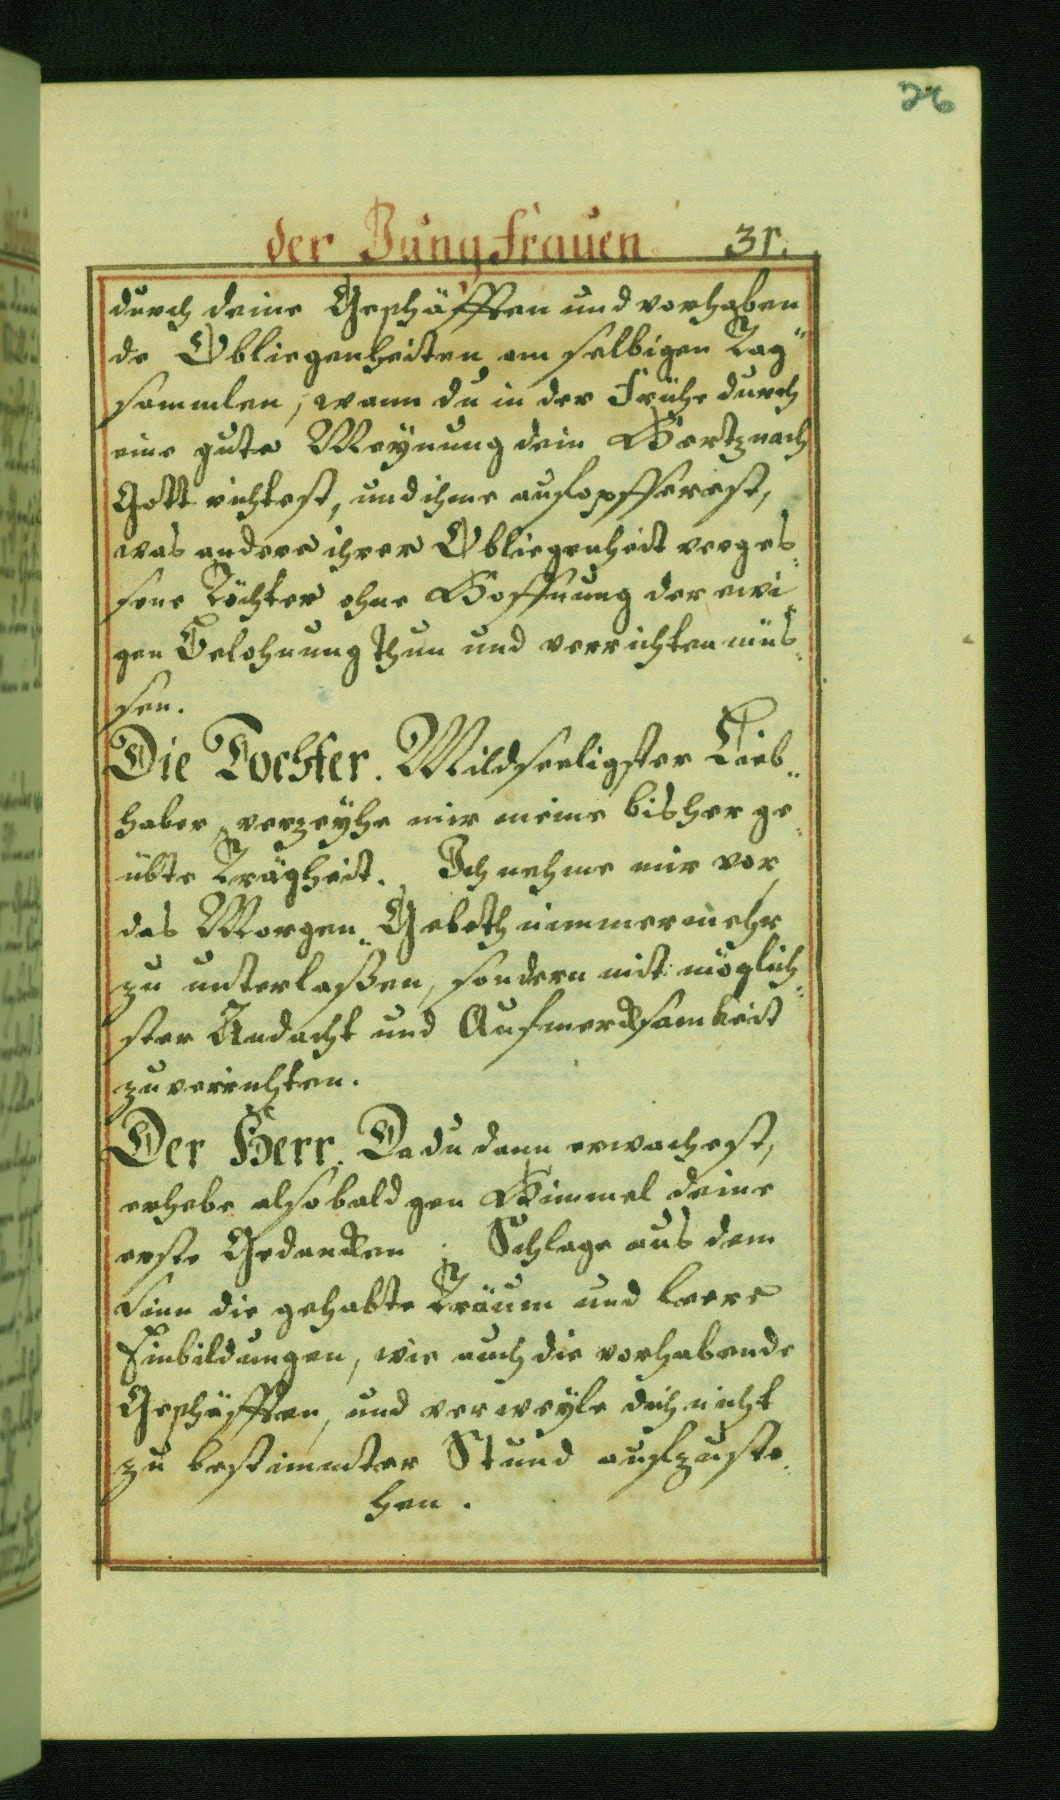 26
der Jungfrauen 31.
durch deine Geschäfften und vorhaben
de Obliegenheiten am selbigen Tag
sammlen, wann du in der Frühe durch
eine gute Meÿnung dein Hertz nach
Gott richtest, und ihme aufopfferest,
was andere ihrer Obliegenheit verges„
sene Töchter ohne Hoffnung der ewi„
gen Belohnung thun und verrichten müs„
sen.
Die Tochter. Mildseeligster Lieb„
haber, verzeÿhe mir meine bisher ge„
übte Trägheit. Ich nehme mir vor,
das Morgen„Gebeth nimmermehr
zu unterlaßen, sondern mit möglich„
ster Andacht und Aufmercksamkeit
zuverrichten.
Der Herr. Da du dann erwachest,
erhebe alsobald gen Himmel deine
erste Gedancken. Schlage aus dem
Sinn die gehabte Träum und leere
Einbildungen, wie auch die vorhabende
Geschäfften, und verweÿle dich nicht
zu bestimmter Stund aufzuste„
hen.